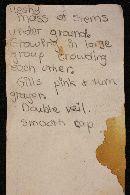 fleshy
mass of stems
under ground.
Growing in large
group crowding
each other.
Gills pink & turn
grayer.
Double veil.
smooth cap